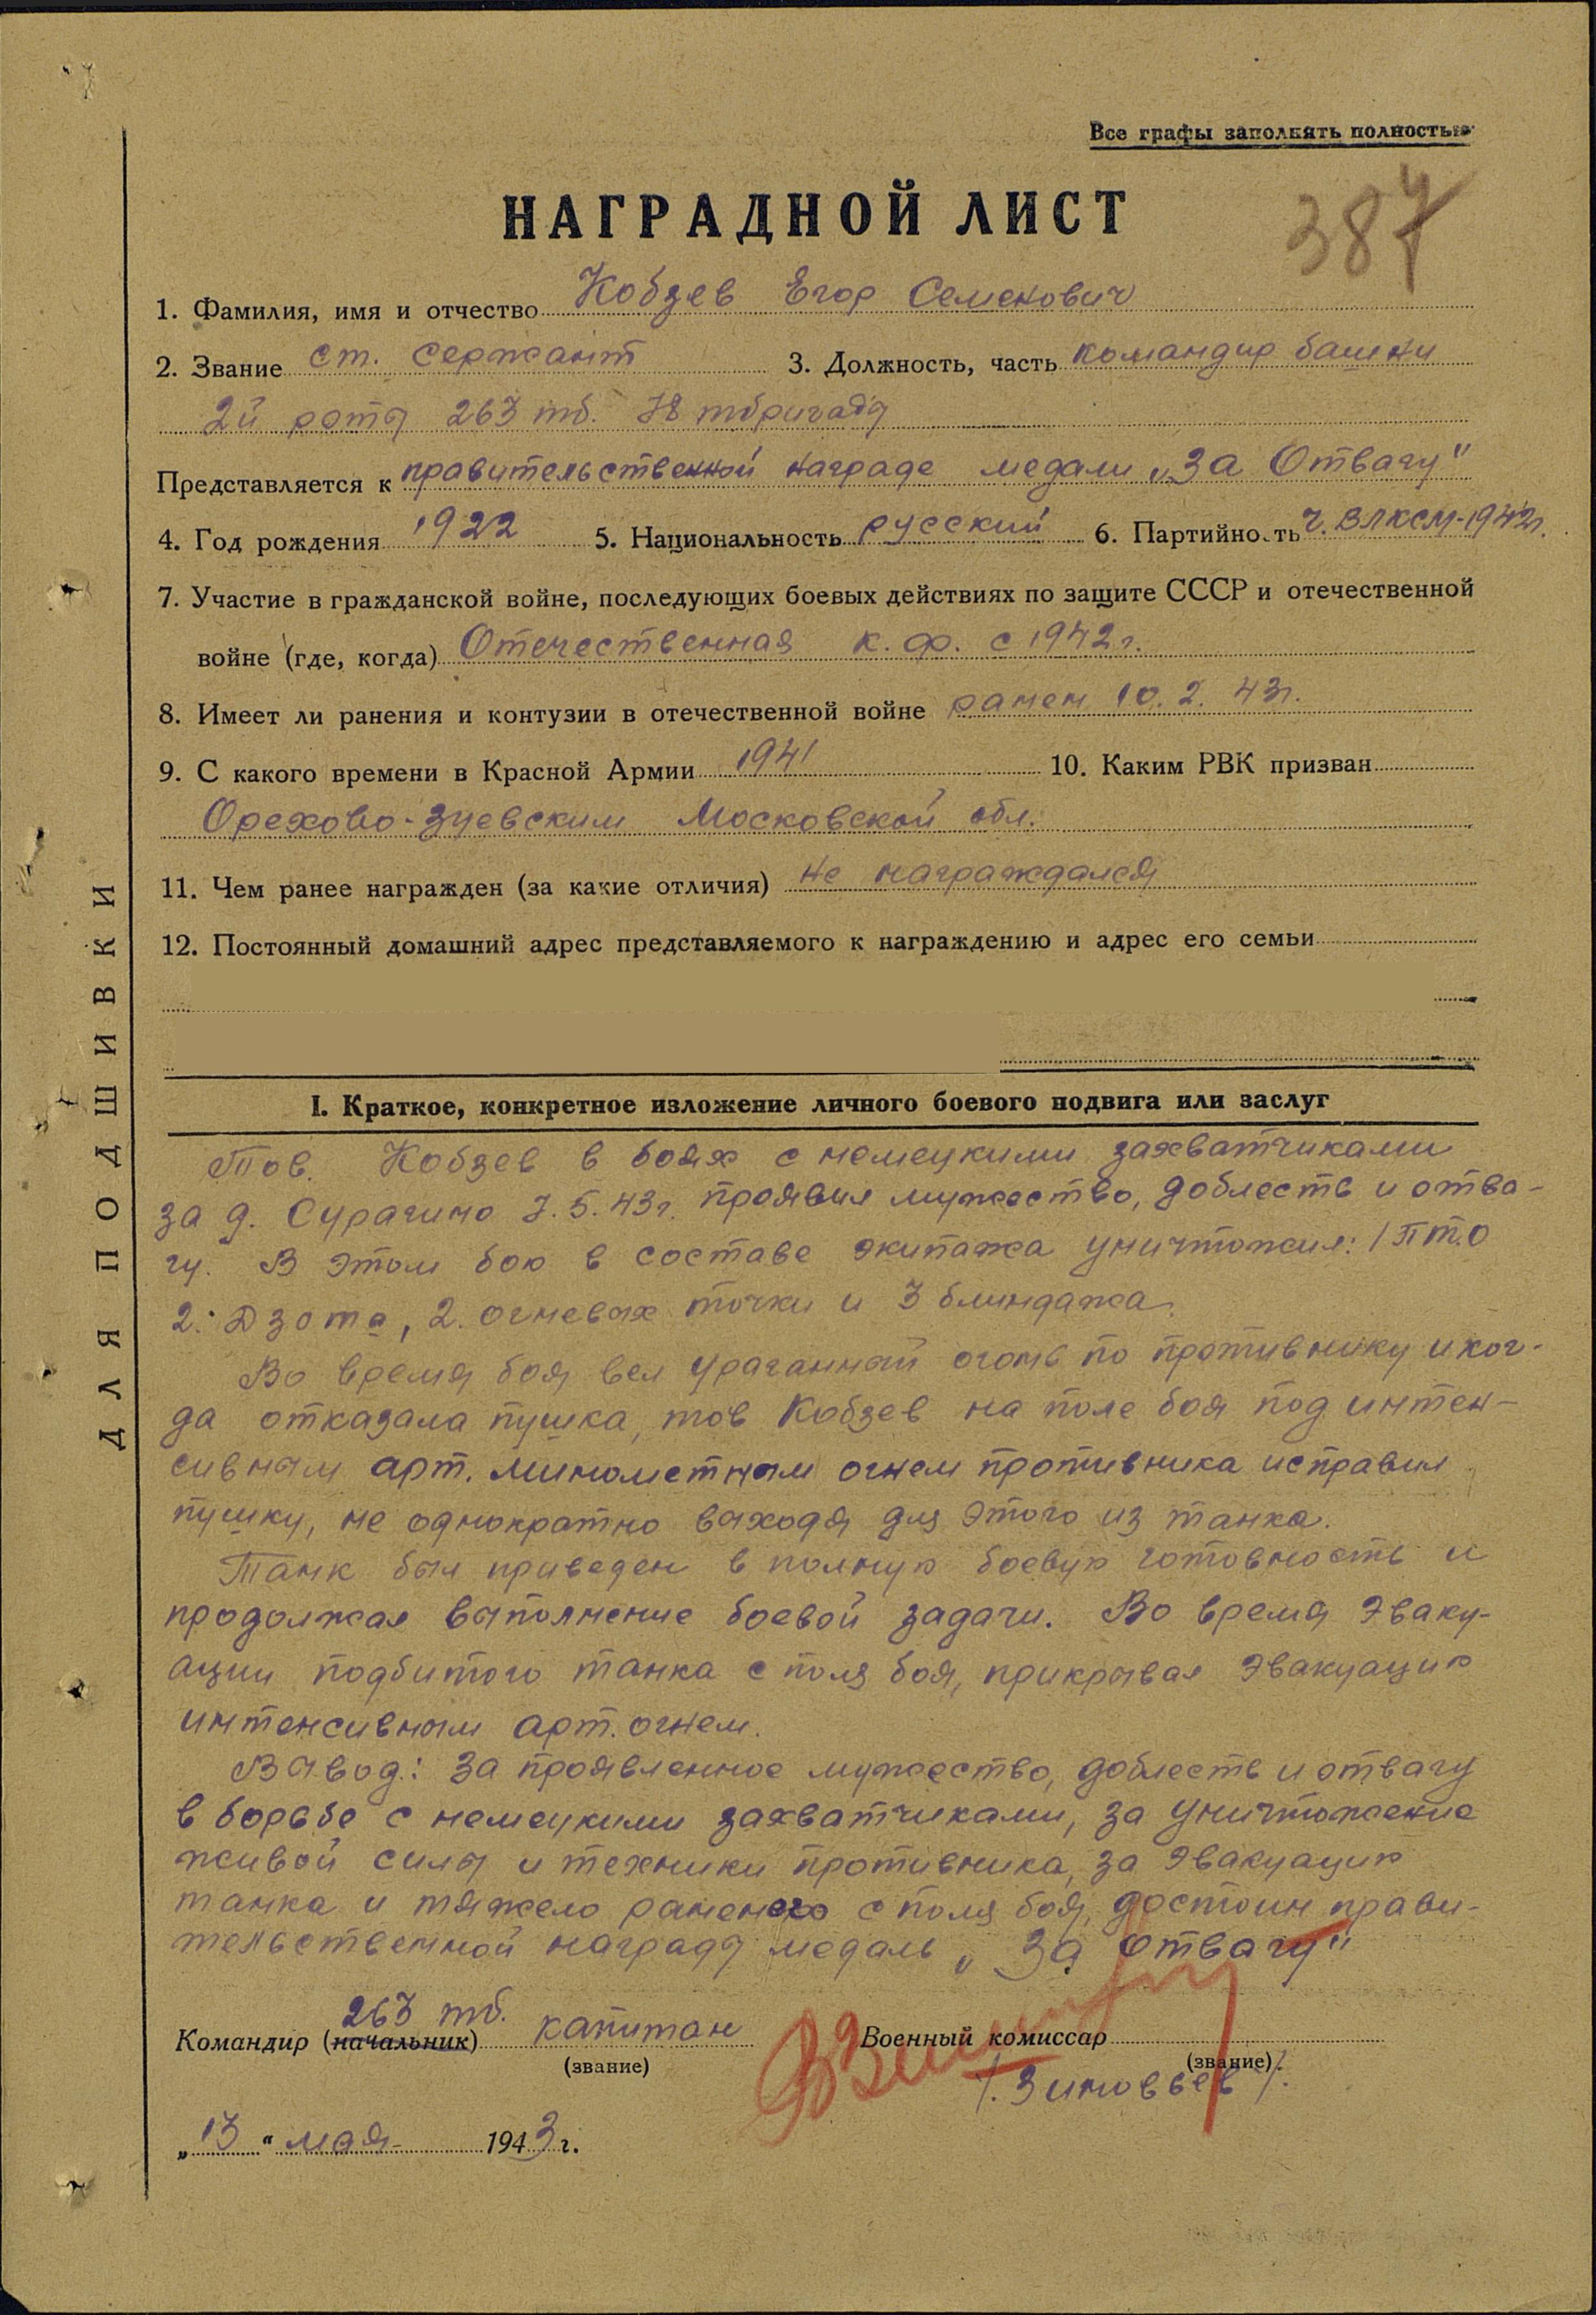 Все графы заполнять полностью
НАГРАДНОЙ ЛИСТ
387
1. Фамилия, имя и отчество Кобзев Егор Семенович
2. Звание ст. сержант 3. Должность, часть командир башни
2й роты 263 тб. 78 тбригады
Представляется к правительственной награде медали „За Отвагу"
4. Год рождения 1922 5. Национальность русский 6. Партийность ч. ВЛКСМ-1942г.
7. Участие в гражданской войне, последующих боевых действиях по защите СССР и отечественной
войне (где, когда) Отечественная К. Ф. с 1942г.
8. Имеет ли ранения и контузии в отечественной войне ранен 10. 2. 43г.
9. С какого времени в Красной Армии 1941 10. Каким РВК призван
Орехово-Зуевским Московской обл.
11. Чем ранее награжден (за какие отличия) не награждался
12. Постоянный домашний адрес представляемого к награждению и адрес его семьи
I. Краткое, конкретное изложение личного боевого подвига или заслуг
Тов. Кобзев в боях с немецкими захватчиками
за д. Сурагино 7.5.43г. проявил мужество, доблесть и отва-
гу. В этом бою в составе экипажа уничтожил: 1 ПТО
2. Дзота, 2. огневых точки и 3 блиндажа.
Во время боя вел ураганный огонь по противнику и ког-
да отказала пушка, тов Кобзев на поле боя под интен-
сивным арт. минометным огнем противника исправил
пушку, не однократно выходя для этого из танка.
Танк был приведен в полную боевую готовность и
продолжал выполнение боевой задачи. Во время эваку-
ации подбитого танка с поля боя, прикрывал эвакуацию
интенсивным арт. огнем.
Вывод: За проявленное мужество, доблесть и отвагу
в борьбе с немецкими захватчиками, за уничтожение
живой силы и техники противника, за эвакуацию
танка и тяжело раненого с поля боя, достоин прави-
тельственной награды медаль „За Отвагу"
263 тб.
Командир (начальник) капитан Военный комиссар
(звание) (звание)
/. Зиновьев /.
„13" мая 1943 г.
ДЛЯ ПОДШИВКИ